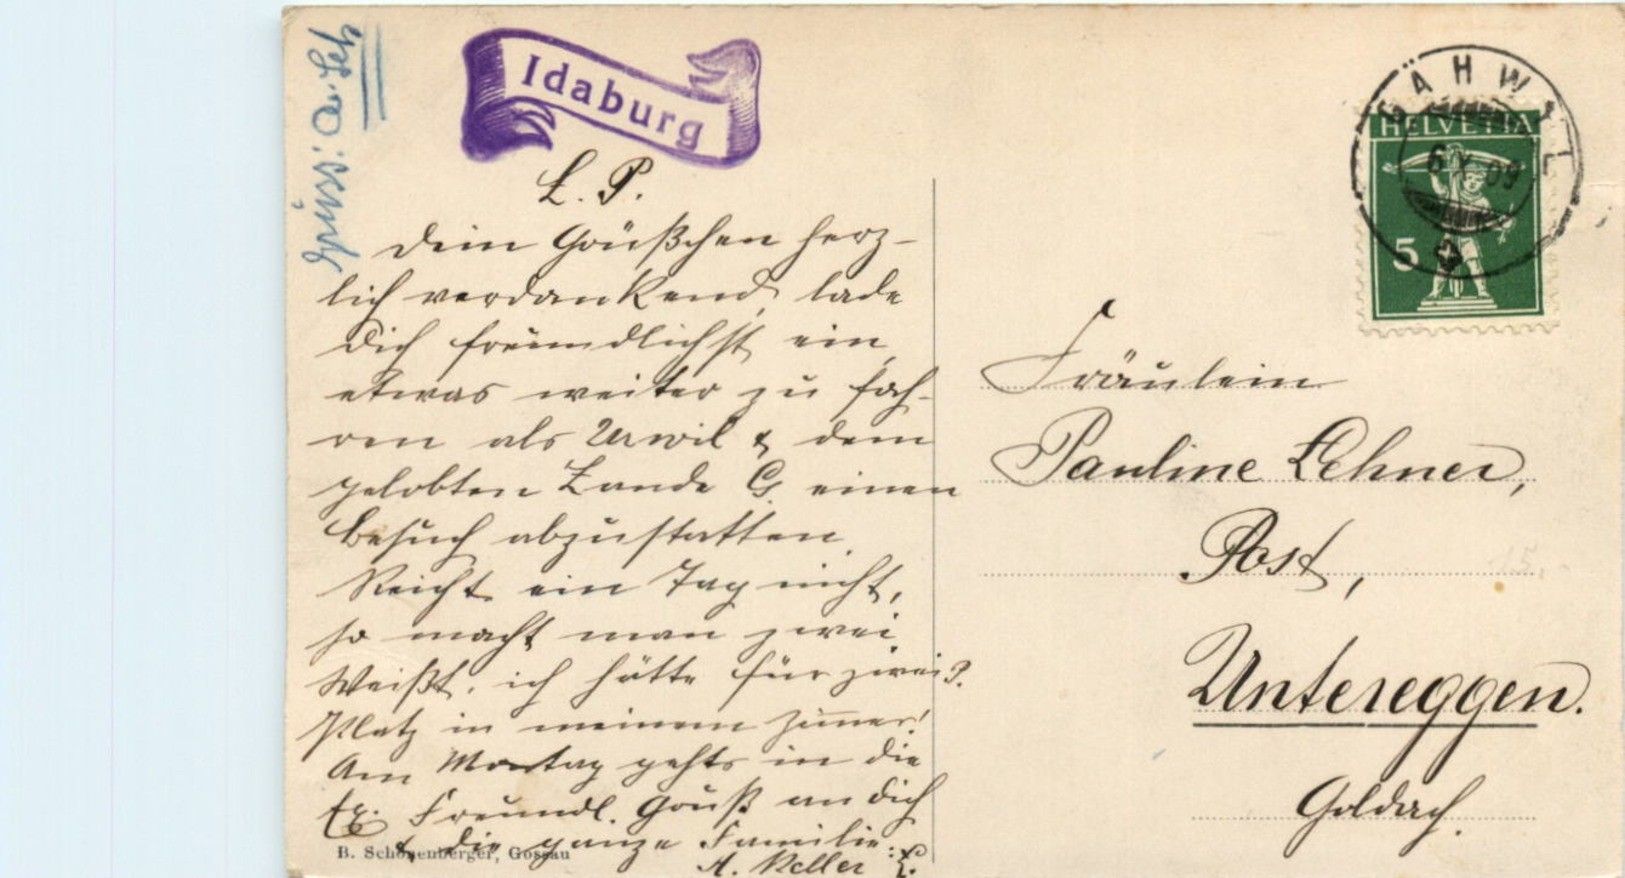 Idaburg
L. P.
Dein Grüßchen herz-
lich verdankend, lade
Dich freundlichst ein,
etwas weiter zu fah-
ren als Urwil & dem
gelobten Lande G. einen
Besuch abzustatten.
Reicht ein Tag nicht,
so macht man zwei.
Weißt, ich hätte für zwei P.
Platz in meinem Zimmer!
Am Montag gehts in die
Ex. Freundl. Gruß an Dich
& die ganze Familie:
A. Keller
B. Schönenberger, Gossau
GÄHWIL
6 X 09
HELVETIA
5
Fräulein
Pauline Lehner,
Post,
Untereggen.
Goldach.